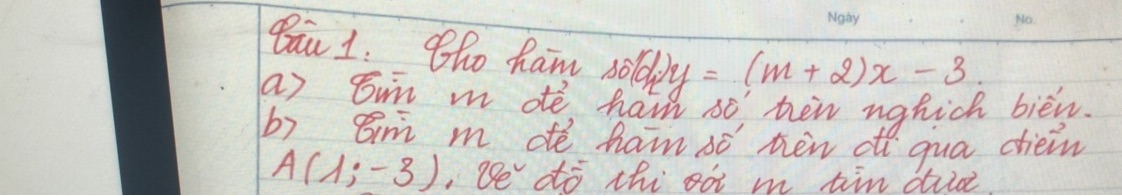 Ngày No.
Câu 1: Cho hàm số (d₁) y = (m + 2)x - 3.
a) Tìm m để hàm số trên nghịch biến.
b) Tìm m để hàm số trên đi qua điểm
A(1; -3). Vẽ đồ thị với m tìm được